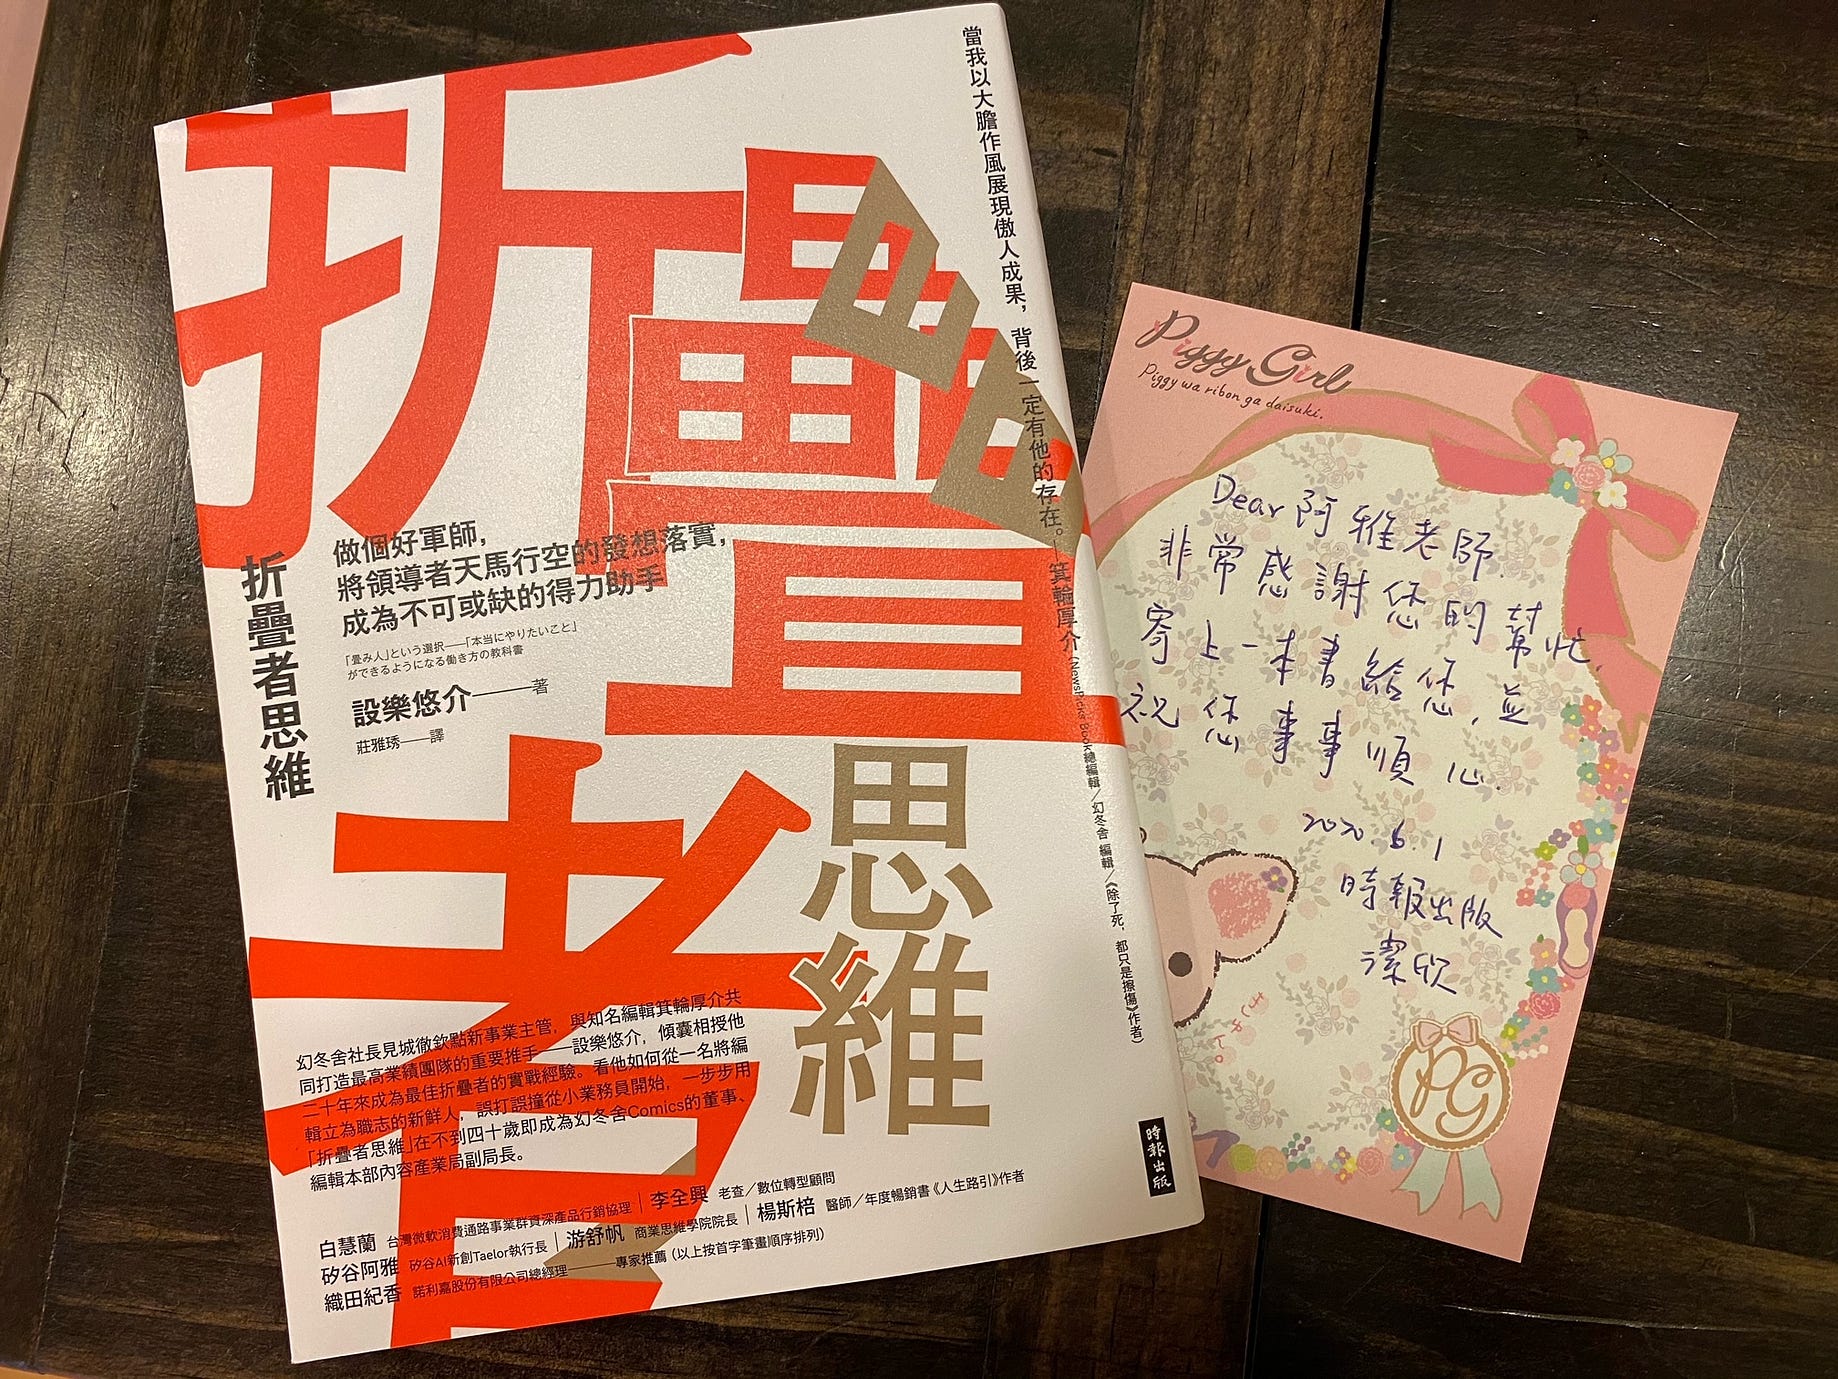 折疊者思維
當我以大膽作風展現傲人成果，背後一定有他的存在。——箕輪厚介（NewsPicks Book總編輯／幻冬舍 編輯／《除了死，都只是擦傷》作者）
折疊者思維
做個好軍師，
將領導者天馬行空的發想落實，
成為不可或缺的得力助手
「畳み人」という選択——「本当にやりたいこと」
ができるようになる働き方の教科書
設樂悠介——著
莊雅琇——譯
幻冬舍社長見城徹欽點新事業主管，與知名編輯箕輪厚介共
同打造最高業績團隊的重要推手——設樂悠介，傾囊相授他
二十年來成為最佳折疊者的實戰經驗。看他如何從一名將編
輯立為職志的新鮮人，誤打誤撞從小業務員開始，一步步用
「折疊者思維」在不到四十歲即成為幻冬舍Comics的董事、
編輯本部內容產業局副局長。
白慧蘭 台灣微軟消費通路事業群資深產品行銷協理｜李全興 老查／數位轉型顧問
矽谷阿雅 矽谷AI新創Taelor執行長｜游舒帆 商業思維學院院長｜楊斯棓 醫師／年度暢銷書《人生路引》作者
織田紀香 諾利嘉股份有限公司總經理——專家推薦（以上按首字筆畫順序排列）
時報出版
Piggy Girl
Piggy wa ribon ga daisuki.
Dear 阿雅老師.
非常感謝您的幫忙,
寄上一本書給您,並
祝您事事順心.
2020.6.1
時報出版
潔欣
PG